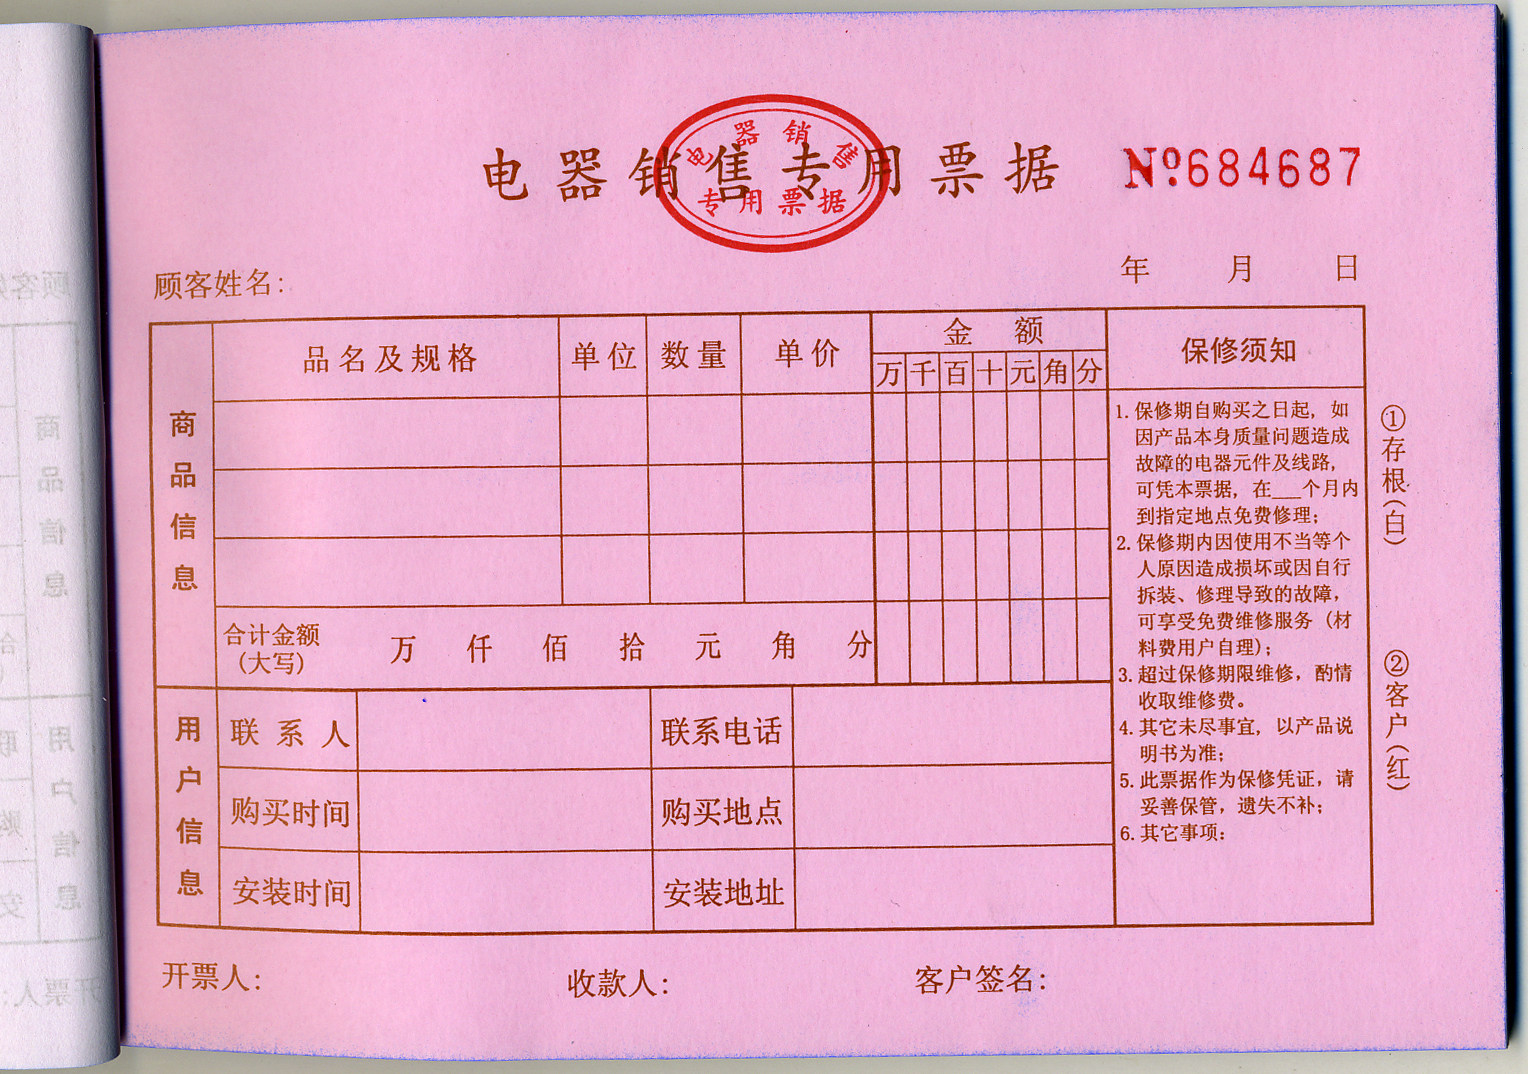 电器销售专用票据
电器销售
专用票据
№684687
顾客姓名:
年 月 日
商品信息
品名及规格 单位 数量 单价 金额
万 千 百 十 元 角 分
合计金额
(大写)
万 仟 佰 拾 元 角 分
用户信息
联系人 联系电话
购买时间 购买地点
安装时间 安装地址
保修须知
1. 保修期自购买之日起, 如
因产品本身质量问题造成
故障的电器元件及线路,
可凭本票据, 在___个月内
到指定地点免费修理;
2. 保修期内因使用不当等个
人原因造成损坏或因自行
拆装、修理导致的故障,
可享受免费维修服务 (材
料费用户自理);
3. 超过保修期限维修, 酌情
收取维修费。
4. 其它未尽事宜, 以产品说
明书为准;
5. 此票据作为保修凭证, 请
妥善保管, 遗失不补;
6. 其它事项:
①存根(白)
②客户(红)
开票人: 收款人: 客户签名: